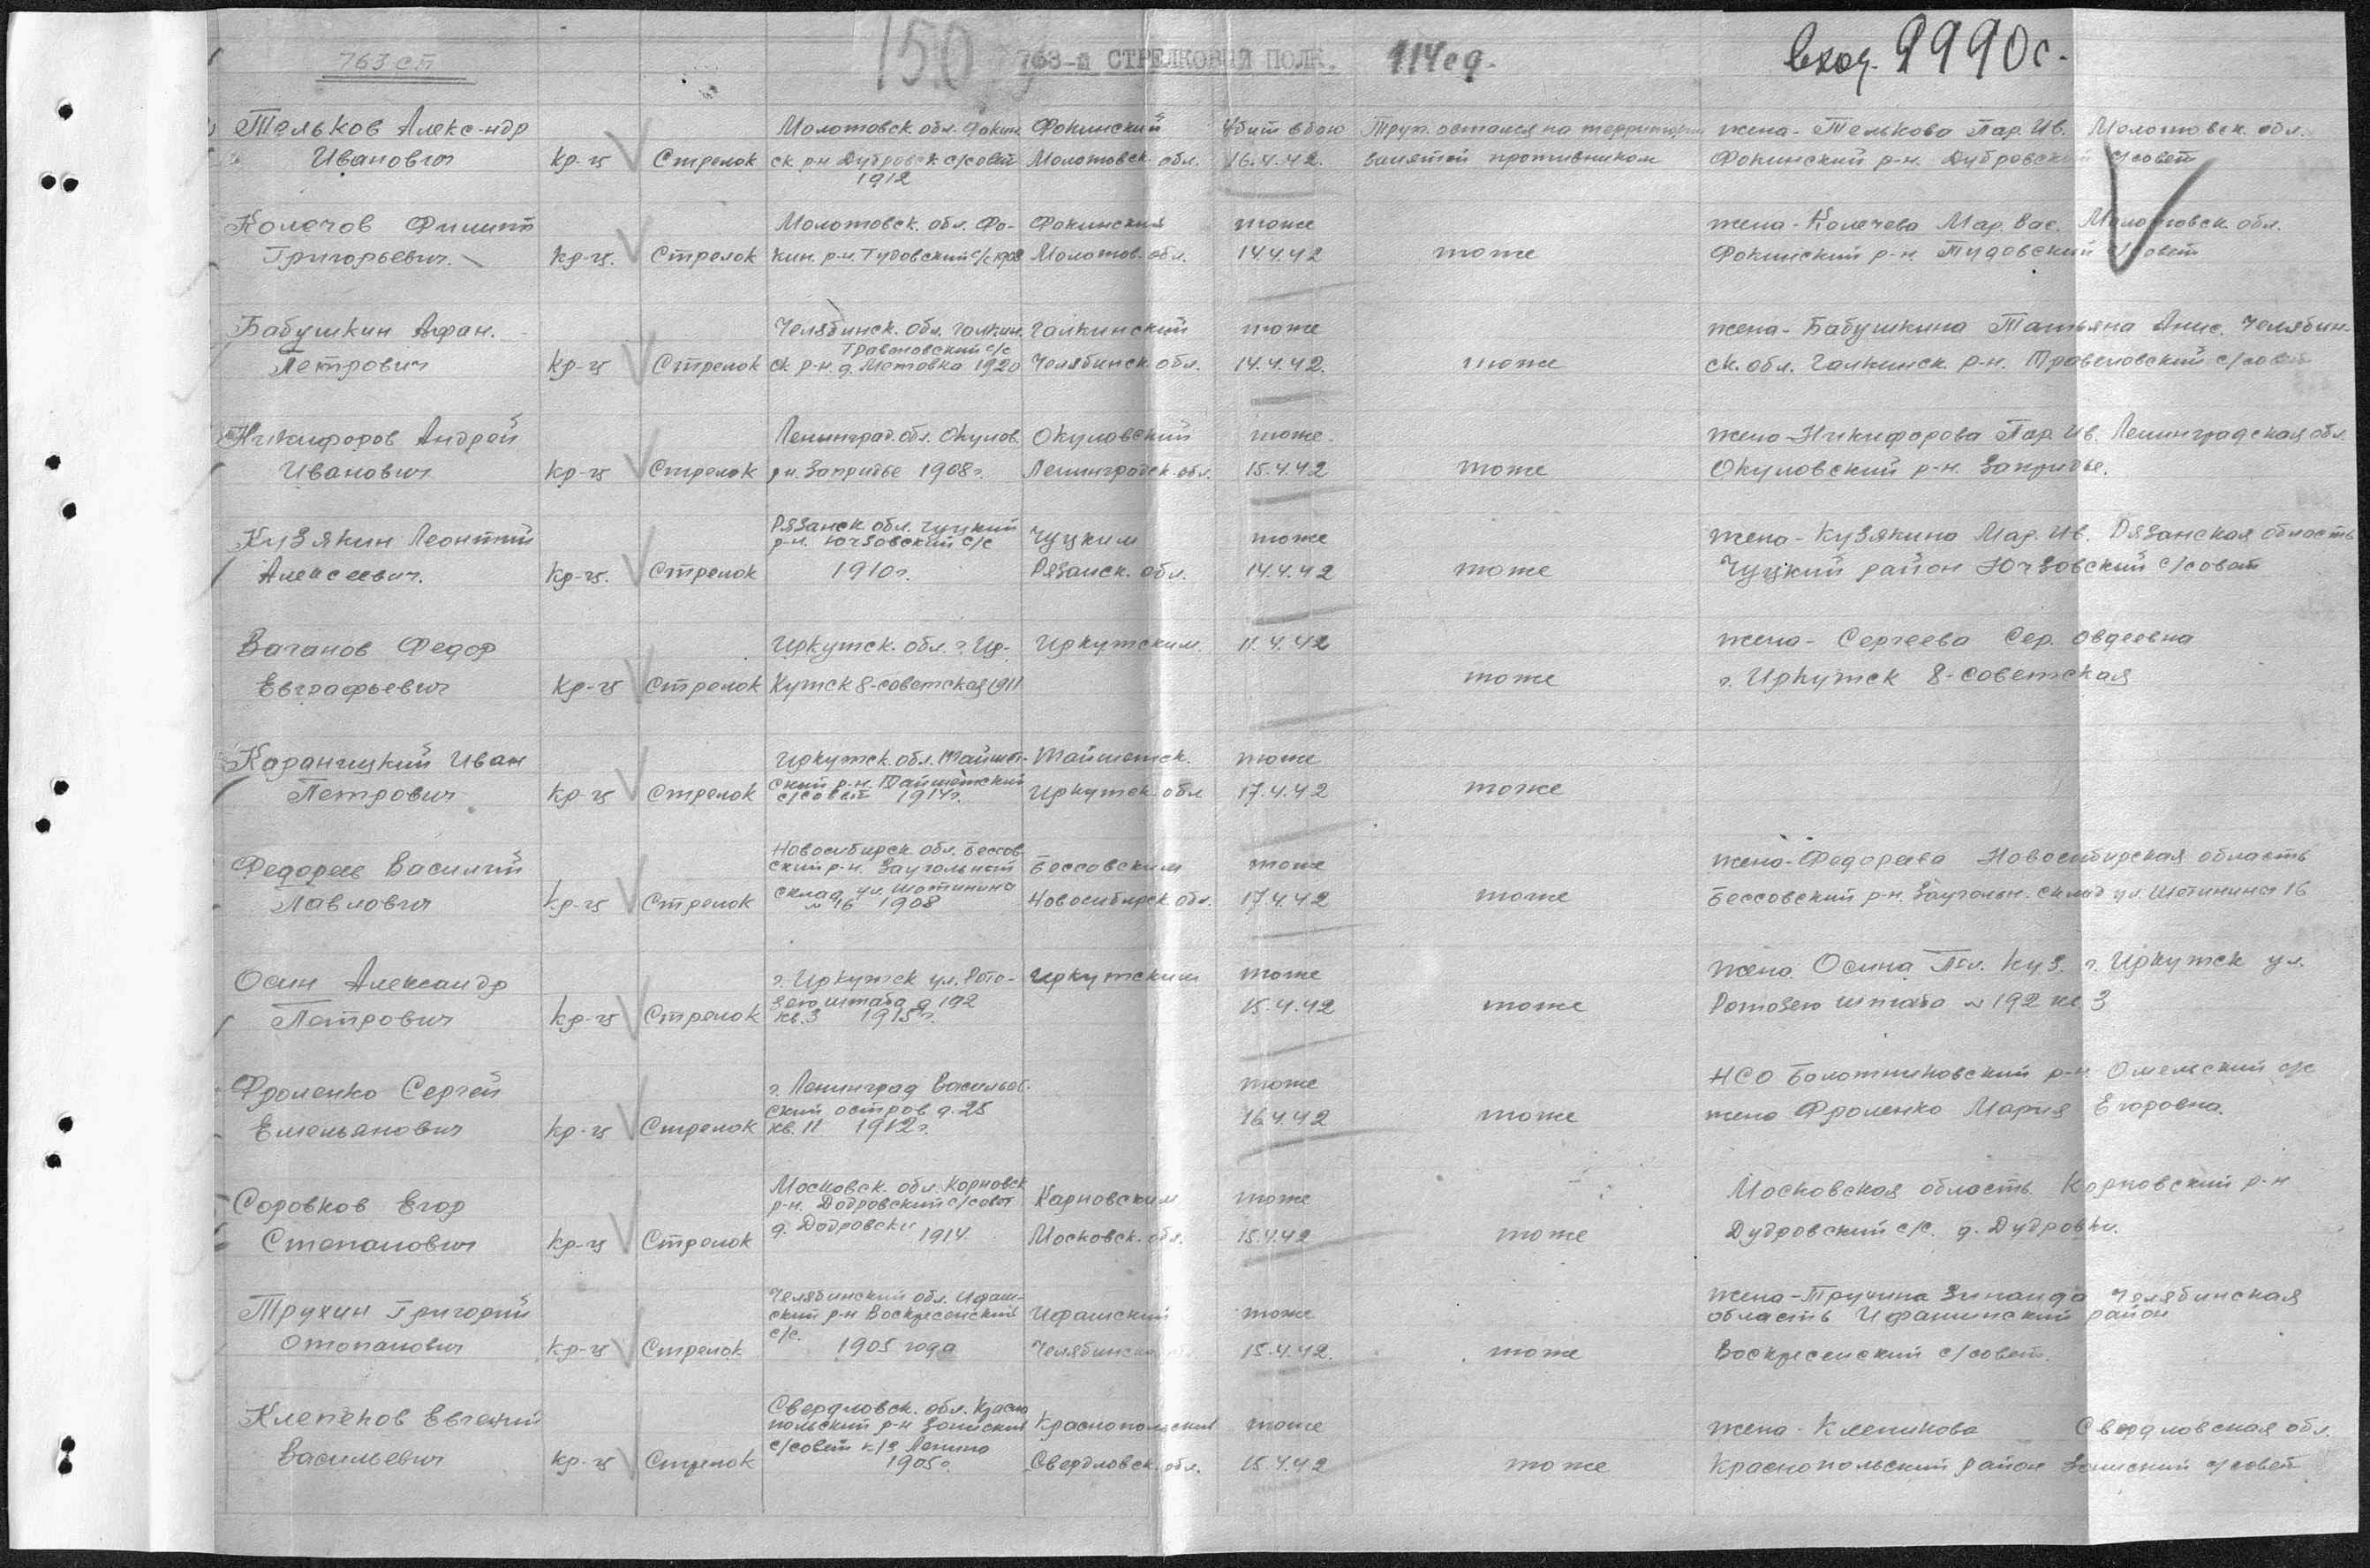 763 сп 150 763-й СТРЕЛКОВЫЙ ПОЛК. 114 сд. Вход. 9990с.
Тельков Алекс-ндр Молотовск. обл. Фокин. Фокинский Убит в бою Труп остался на территории жена - Телькова Пар. Ив. Молотовск. обл.
Иванович кр-ц Стрелок ск. р-н Дубровск с/совет Молотовск. обл. 16.4.42. занятой противником Фокинский р-н. Дубровский с/совет
1912
Колечов Филипп Молотовск. обл. Фо- Фокинский тоже жена - Колечева Мар. Вас. Молотовск. обл.
Григорьевич. кр-ц. Стрелок кин. р-н. Тудовский с/с 1908 Молотов. обл. 14.4.42 тоже Фокинский р-н. Тудовский совет
Бабушкин Афан. Челябинск. обл. Галкин. Галкинский тоже жена - Бабушкина Татьяна Анис. Челябин-
Травяновский с/с
Петрович кр-ц Стрелок ск р-н. д. Мотовка 1920 Челябинск. обл. 14.4.42. тоже ск. обл. Галкинск. р-н. Травеловский с/совет
Никифоров Андрей Ленинград. обл. Окулов. Окуловский тоже. жена - Никифорова Пар. Ив. Ленинградская обл.
Иванович кр-ц Стрелок р-н. Запридье 1908 г. Ленинградск. обл. 15.4.42 тоже Окуловский р-н. Запридье.
Рязанск обл. Чуцкий
Кузякин Леонтий р-н. Ючзовский с/с Чуцким тоже жена - Кузякина Мар. Ив. Рязанская область
Алексеевич. кр-ц. Стрелок 1910 г. Рязанск. обл. 14.4.42 тоже Чуцкий район Ючзовский с/совет
Ваганов Федор Иркутск. обл. г. Ир- Иркутским. 11.4.42 жена - Сергеева Сер. Овдеевна
Евграфьевич кр-ц Стрелок кутск 8-советская 1911 тоже г. Иркутск 8-советская
Каранчицкий Иван Иркутск. обл. Тайшет- Тайшетск. тоже
Петрович кр-ц Стрелок ский р-н. Тайшетский Иркутск. обл 17.4.42 тоже
с/совет 1914 г.
Новосибирск. обл. Бессов
Федореев Василий ский р-н. Заугольный Бессовским тоже жена - Федореева Новосибирская область
Павлович кр-ц Стрелок склад ул. Шотинина Новосибирск. обл. 17.4.42 тоже Бессовский р-н. Заугольн. склад ул. Шетинина 16
№ 16 1908
Осин Александр г. Иркутск ул. Рото- Иркутским тоже жена Осина Пел. Куз. г. Иркутск ул.
Петрович кр-ц Стрелок зего штаба д 192 15.4.42 тоже Ротозего штаба № 192 кв 3
кв. 3 1915 г.
Фроленко Сергей г. Ленинград Васильев- тоже НСО Болотниковский р-н. Омельский с/с
Емельянович кр-ц Стрелок ский остров д. 25 16.4.42 тоже жена Фроленко Мария Егоровна.
кв. 11 1912 г.
Московск. обл. Корновск
Соровков Егор р-н. Додровский с/совет Карновским тоже Московская область Корновский р-н
Степанович кр-ц Стрелок д. Додровски 1914 Московск. обл. 15.4.42 тоже Дудровский с/с. д. Дудровки.
Челябинский обл. Ифаш- жена - Трухина Зинаида Челябинская
Трухин Григорий ский р-н Воскресенский Ифашский тоже область Ифашинский район
Отопанович кр-ц Стрелок с/с. 1905 года Челябинск 15.4.42. тоже Воскресенский с/совет.
Свердловск. обл. Красно
Клепенов Евгений польский р-н Заинский Краснопольский тоже жена - Клепикова Свердловская обл.
Васильевич кр-ц Стрелок с/совет к/з Ленина Свердловск. обл. 15.4.42 тоже Краснопольский район Заинский с/совет
1905 г.